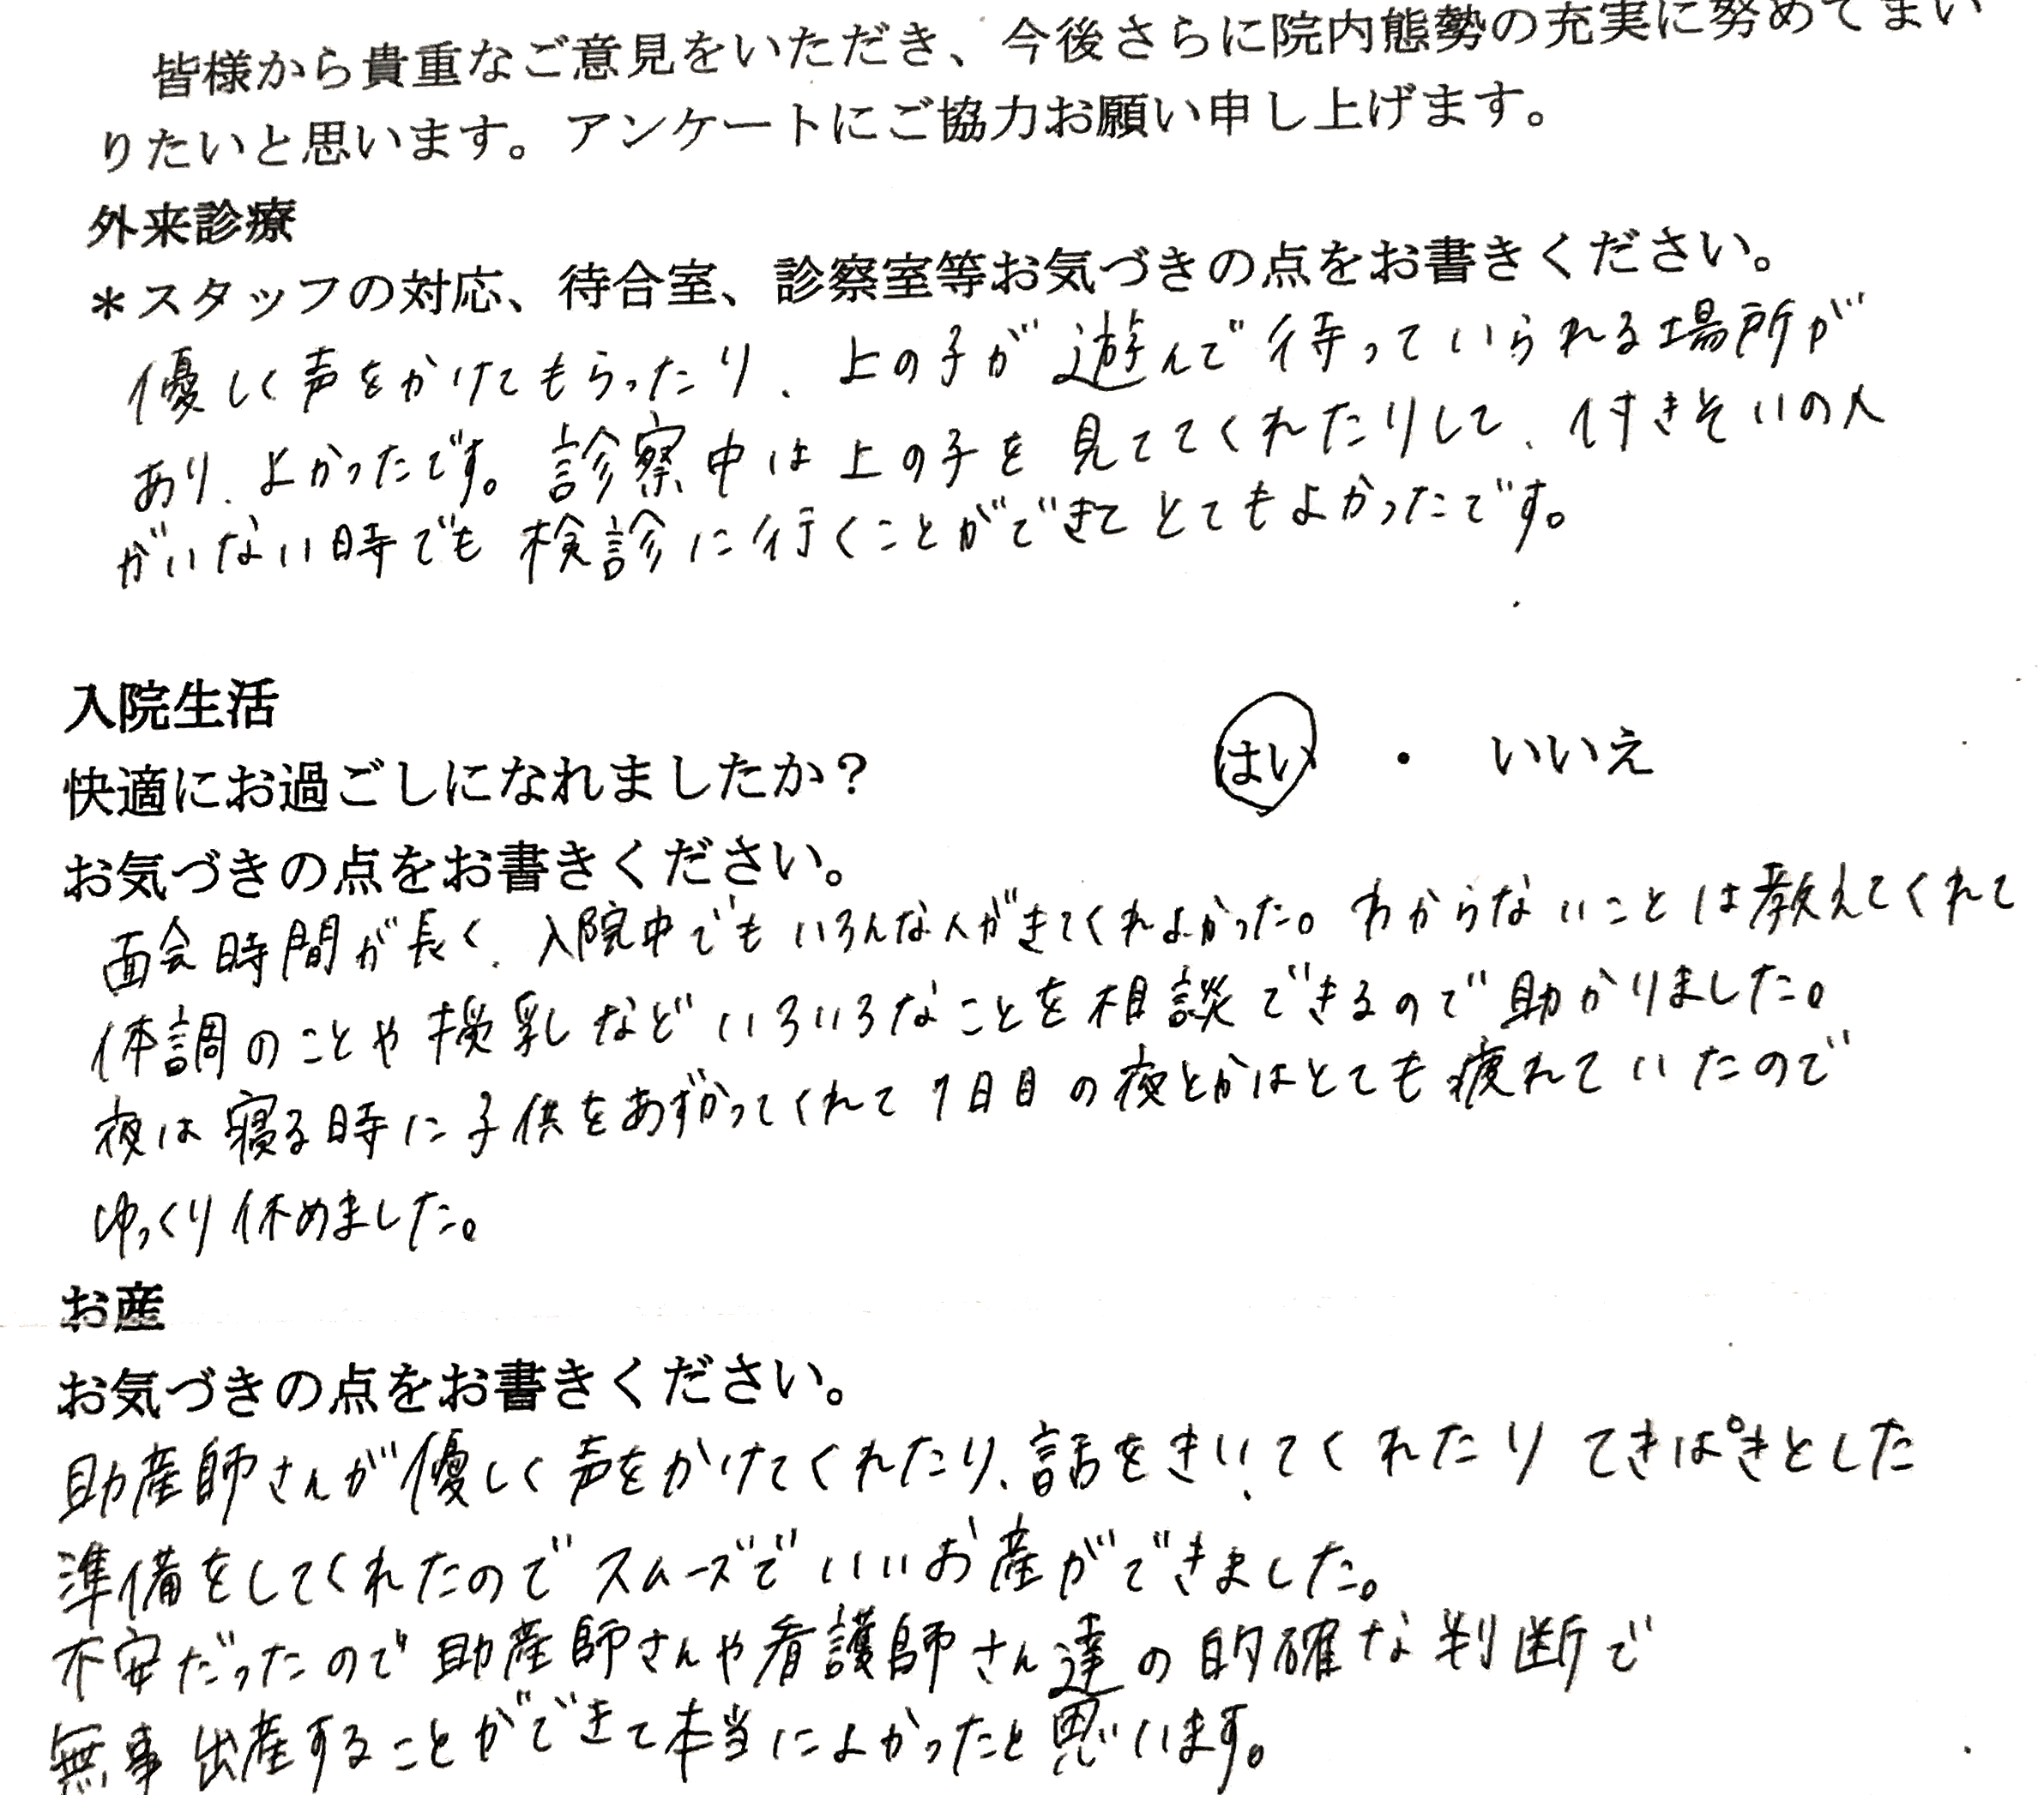 皆様から貴重なご意見をいただき、今後さらに院内態勢の充実に努めてまい
りたいと思います。アンケートにご協力お願い申し上げます。
外来診療
＊スタッフの対応、待合室、診察室等お気づきの点をお書きください。
優しく声をかけてもらったり、上の子が遊んで待っていられる場所が
あり、よかったです。診察中は上の子を見ててくれたりして、付きそいの人
がいない時でも検診に行くことができてとてもよかったです。
入院生活
快適にお過ごしになれましたか？ はい ・ いいえ
お気づきの点をお書きください。
面会時間が長く、入院中でもいろんな人がきてくれよかった。わからないことは教えてくれて
体調のことや授乳などいろいろなことを相談できるので助かりました。
夜は寝る時に子供をあずかってくれて1日目の夜とかはとても疲れていたので
ゆっくり休めました。
お産
お気づきの点をお書きください。
助産師さんが優しく声をかけてくれたり、話をきいてくれたりてきぱきとした
準備をしてくれたのでスムーズでいいお産ができました。
不安だったので助産師さんや看護師さん達の的確な判断で
無事出産することができて本当によかったと思います。